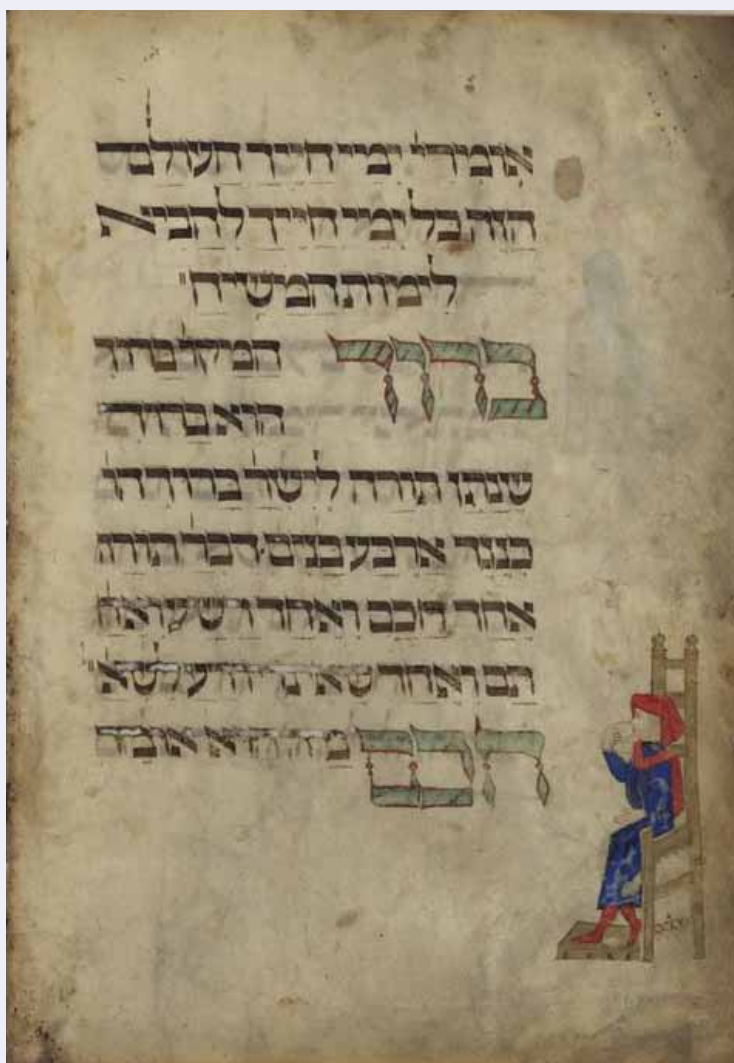 אומרי׳ ימיי חייך העולם
הזה כל ימיי חייך להביא
לימות המשיח׃
ברוך המקו׳ ברוך
הוא ברוך
שנתן תורה לישר׳ ברוך הו׳
כנגד ארבע בנים דבר׳ תורה
אחד חכם ואחד רשע ואח׳
תם ואחד שאינו יודע לשא׳
חכם מה הוא אומר